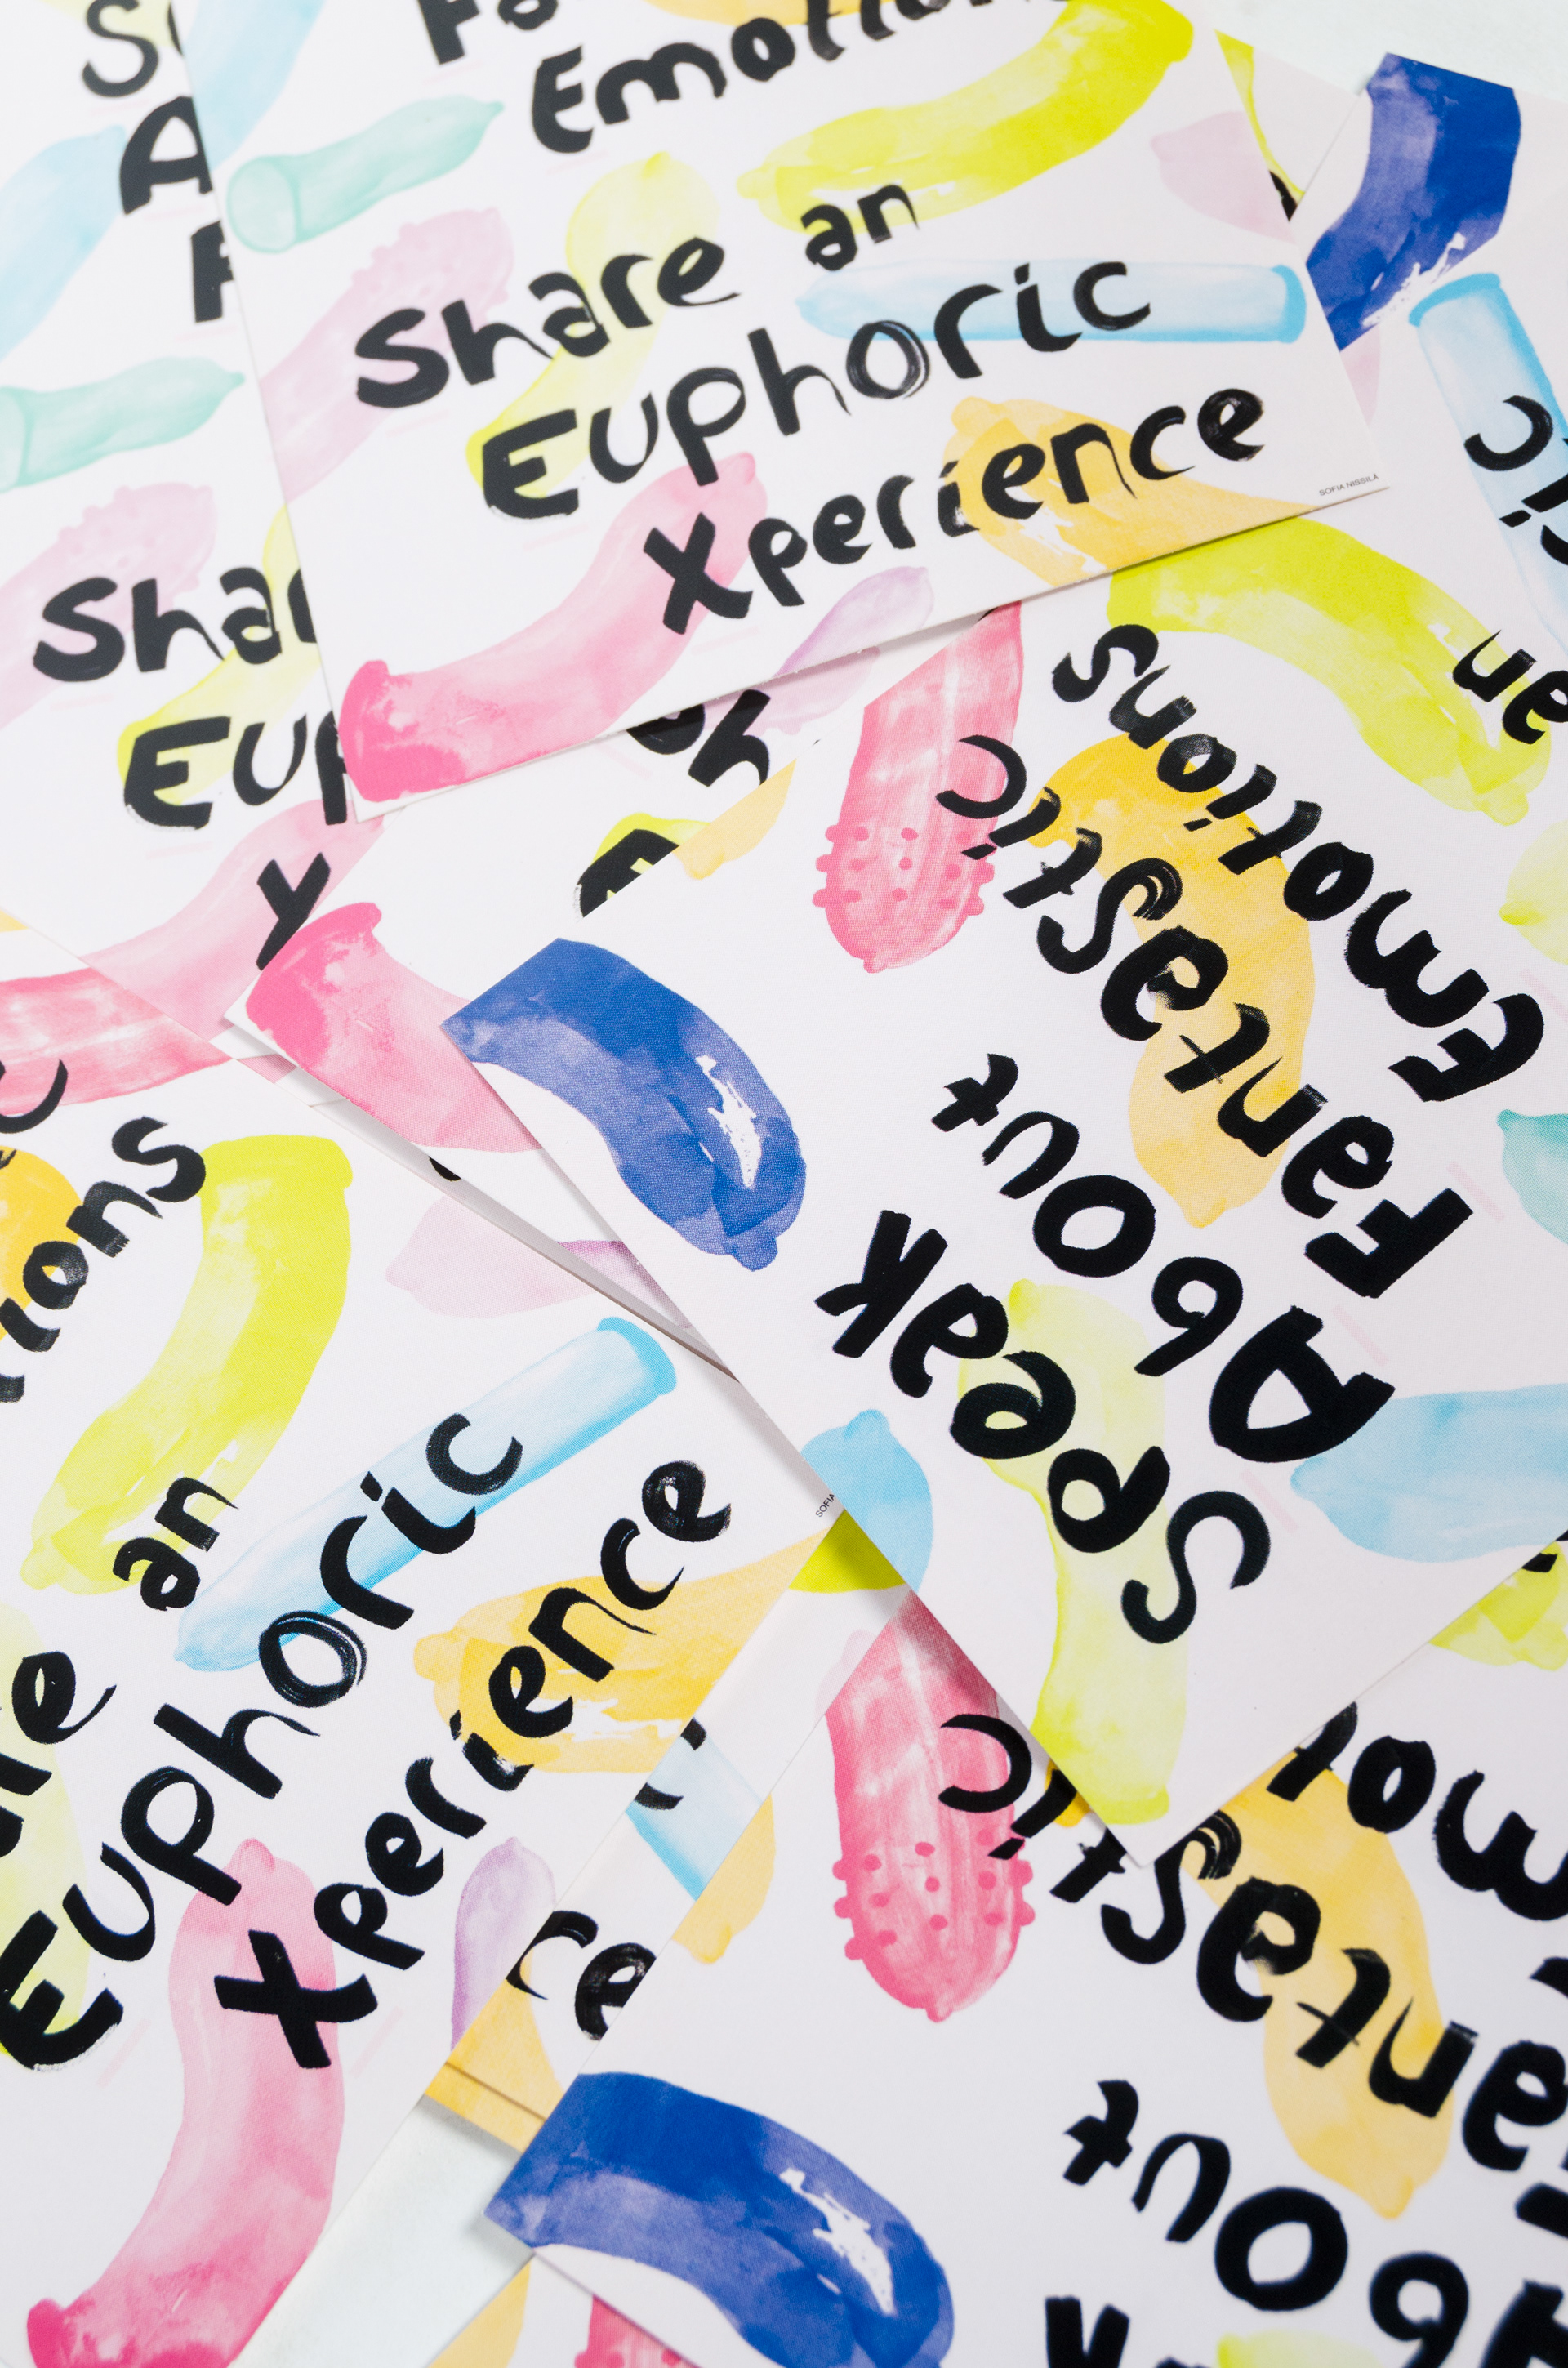 Emotions
Share an
Euphoric
Xperience
SOFIA NISSILÄ
Shar
Eup
Speak
About
Fantastic
Emotions
an
ic
an
Euphoric
Xperience
SOFIA
ce
About
Fantastic
Emot